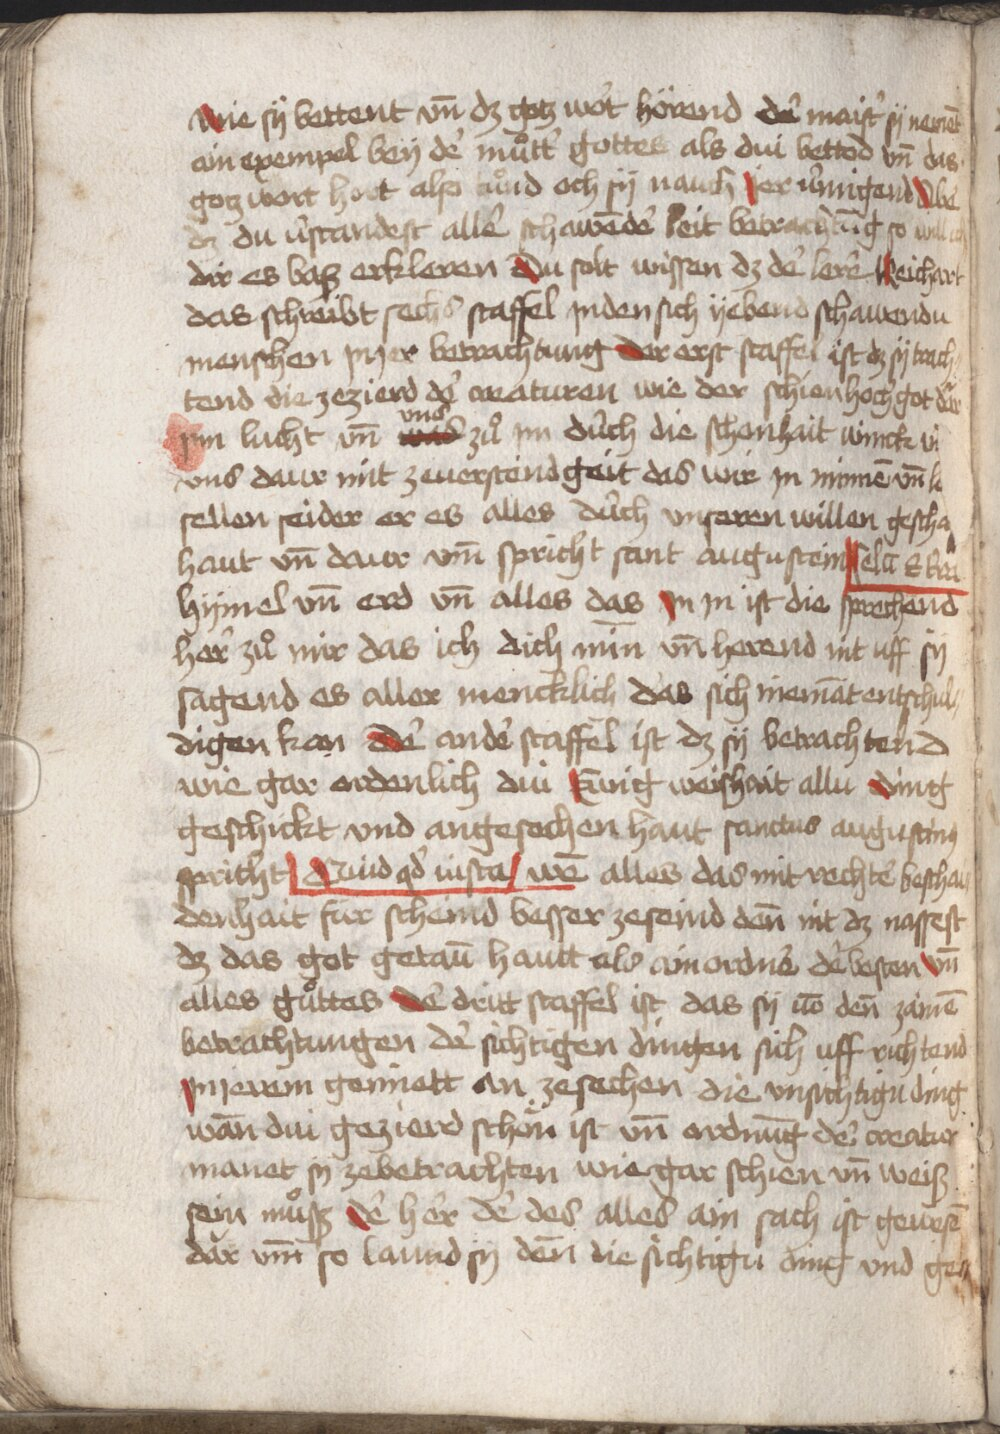 Wie sÿ bettent vn̄ dz gotz wo᷒t hörend de᷒ maist᷒ sÿ neme᷒t
ain exempel beÿ de᷒ mu᷒ott᷒ gottes als dui bettod vn̄ das
gotz wort hort also tůnd och sÿ nauch jer v᷒migend
dz du v᷒standest alle᷒ schawēde᷒ leit betrachtūg so will ich
dir es basz erkleren Du solt wissen dz de᷒ lere᷒ Reichart
das schreibt sechs staffel jnden sich yebend schawendu
menschen jn jer betrachtung Der erst staffel ist dz sÿ trach
tend die zezierd de᷒ creaturen wie der schien hoch got
jm lucht vn̄ vns zů im durch die schenhait winck
vns daur mit zeuerstendgeit das wir jn minnē vn̄
sellen seider er es alles durch vnseren willen gescha
haut vn̄ daur vm̄ spricht sant augustein
hÿmel vn̄ erd vn̄ alles das jn jn ist die sprechend
her᷒ zů mir das ich dich min̄ vn̄ herend nit uff sÿ
sagend es aller mencklich das sich niemāt entschul
digen kan De᷒ ande᷒ staffel ist dz sÿ betrachtend
wie gar ordenlich dui ewig weishait allu ding
geschickt vnd angesechen haut sanctus augustinus
spricht Quid qd᷒ iusta we᷒ alles das mit rechte᷒ beschai
denhait fúr scheind besser zeseind den̄ nit dz
dz das got getan̄ hautt als ain ordne᷒ de᷒ besten vn̄
alles gůttes De᷒ dritt staffel ist das sÿ vō den̄
betrachtungen de᷒ sichtigen dingen sich uff richtend
jn jerem gemiett an zesechen die vnsichtigu ding
wan̄ dui gezierd schön ist vn̄ ordnūg de᷒ creatur
manet sÿ zebetrachten wie gar schien vn̄ weisz
sein můsz de᷒ her᷒ de᷒ des alles ain sach ist gewesē
dar vm̄ so laund sÿ den̄ die sichtigu ding vnd